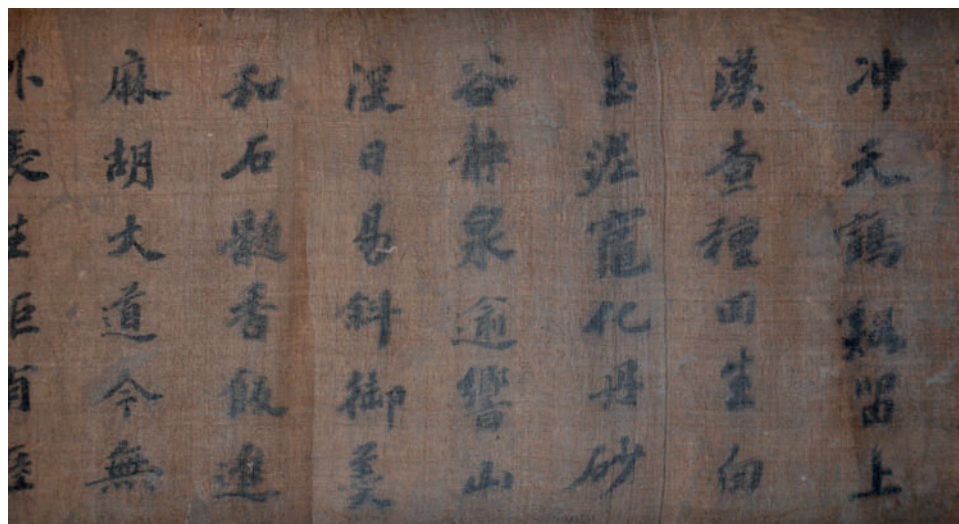 冲天鶴谿留上
漢查種田生白
玉泥竈化丹砂
谷静泉逾響山
深日易斜御羹
和石髓香飯進
麻胡大道今無
外長生詎有